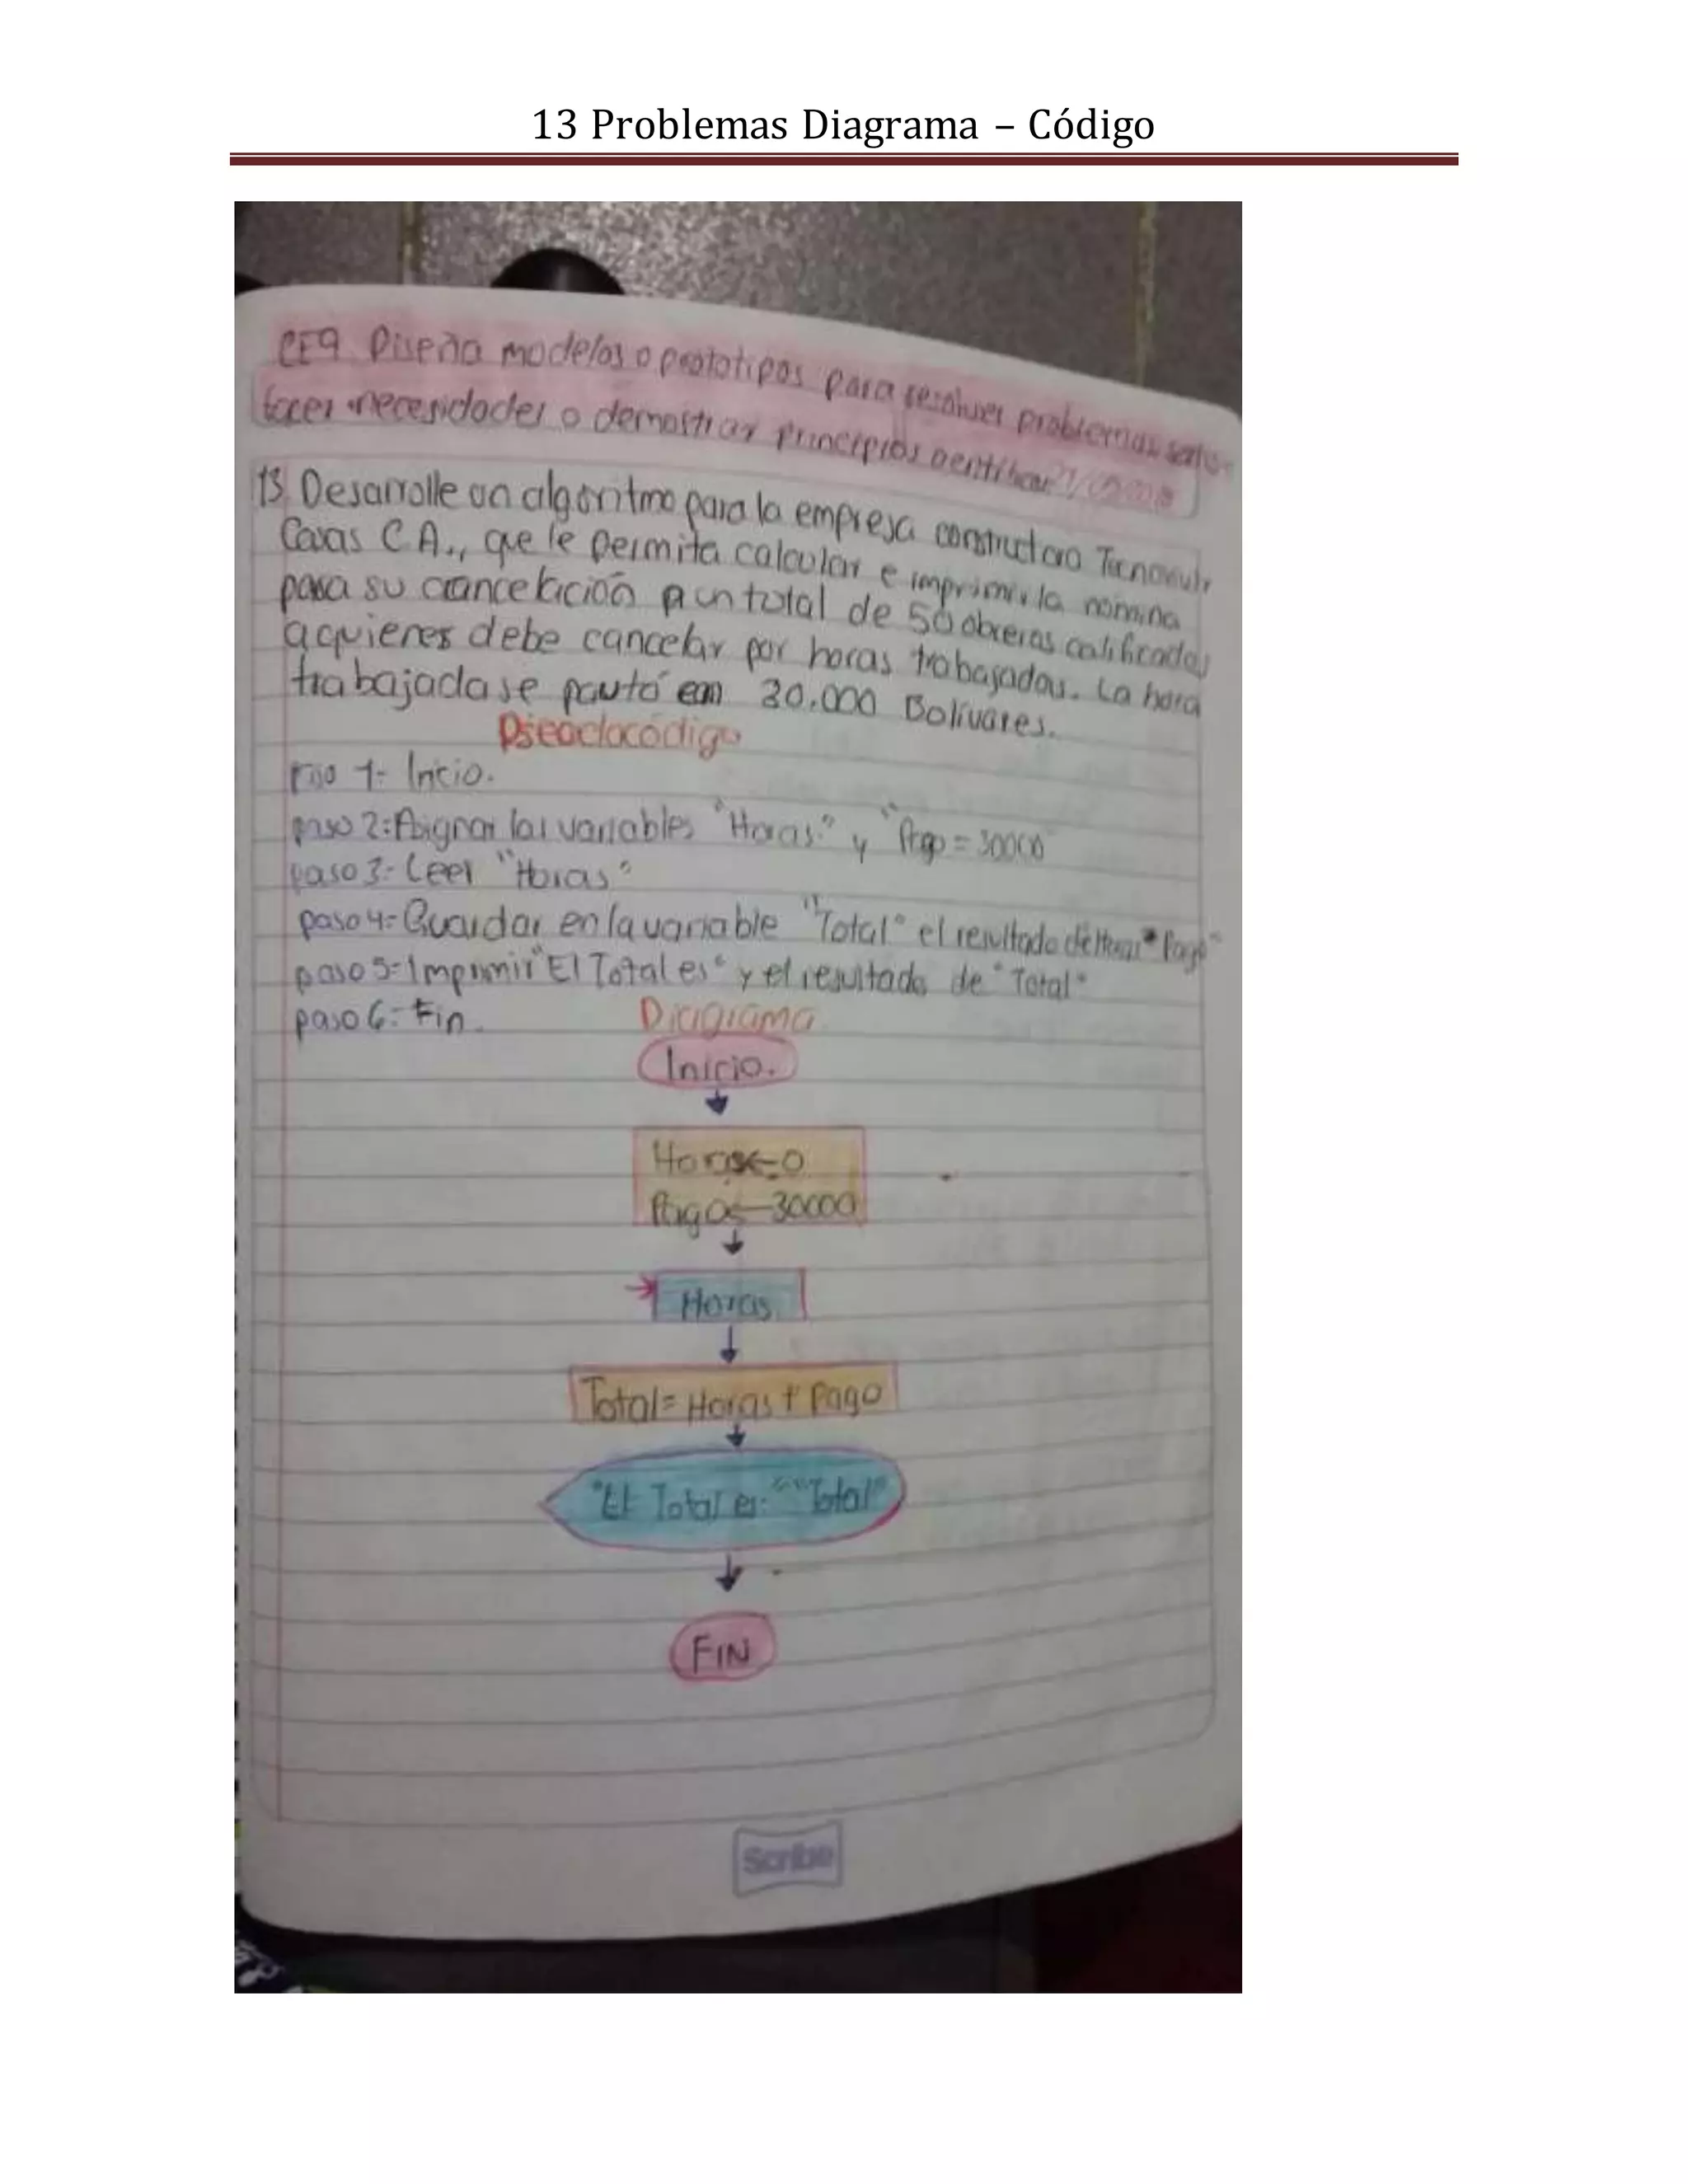 13 Problemas Diagrama – Código
CE9 Diseña modelos o prototipos para resolver problemas satis-
facer necesidades o demostrar principios
13 Desarrolle un algoritmo para la empresa constructora
Casas C.A., que le permita calcular e imprimir la nomina
para su cancelación a un total de 50 obreros calificados
a quienes debe cancelar por horas trabajadas. La hora
trabajada se pautó en 30.000 Bolivares.
Pseodocódigo
paso 1= Inicio.
paso 2= Asignar las variables "Horas" y "Pago = 30000
paso 3= Leer "Horas"
paso 4= Guardar en la variable "Total" el resultado de Horas * Pago"
paso 5= Imprimir "El Total es" y el resultado de "Total"
paso 6= Fin.
Diagrama
Inicio.
Horas←0
Pago←30000
Horas
Total= Horas * Pago
"El Total es:" "Total"
FIN
Scribe